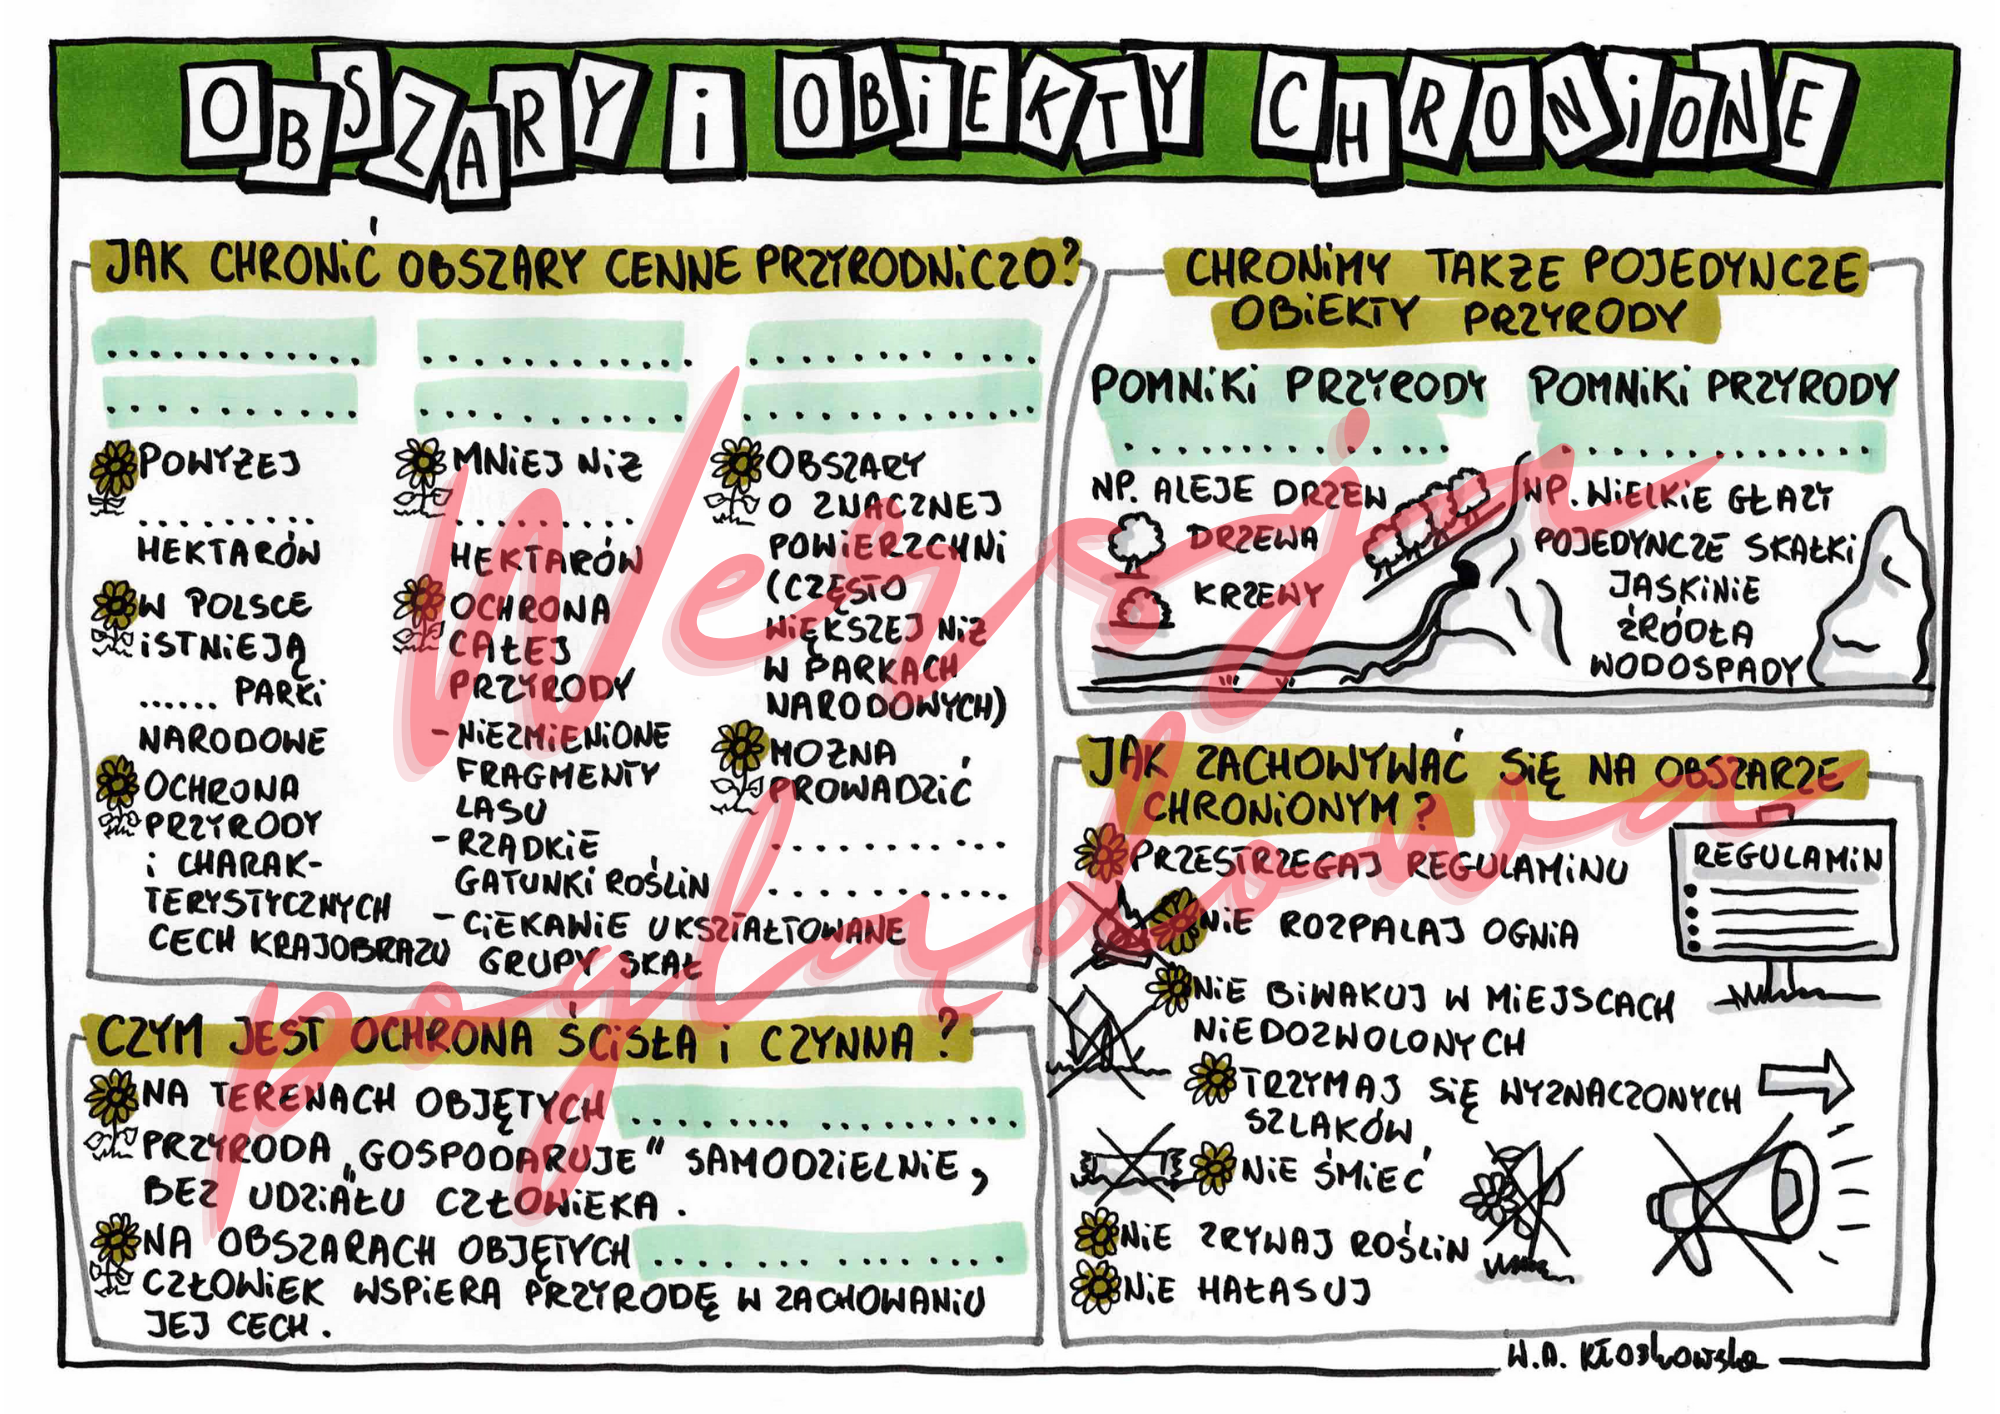 OBSZARY i OBiEKTY CHRONiONE
JAK CHRONiĆ OBSZARY CENNE PRZYRODNiCZO?
.............
...........
POWYŻEJ
.........
HEKTARÓW
W POLSCE
iSTNiEJĄ
...... PARKi
NARODOWE
OCHRONA
PRZYRODY
i CHARAK-
TERYSTYCZNYCH
CECH KRAJOBRAZU
.............
............
MNiEJ NiŻ
.........
HEKTARÓW
OCHRONA
CAŁEJ
PRZYRODY
- NiEZMiENiONE
FRAGMENTY
LASU
- RZADKiE
GATUNKi ROŚLiN
- CiEKAWiE UKSZTAŁTOWANE
GRUPY SKAŁ
.............
.............
OBSZARY
O ZNACZNEJ
POWiERZCHNi
(CZĘSTO
WiĘKSZEJ NiŻ
W PARKACH
NARODOWYCH)
MOŻNA
PROWADZiĆ
...........
...........
CZYM JEST OCHRONA ŚCiSŁA i CZYNNA?
NA TERENACH OBJĘTYCH ........ .........
PRZYRODA „GOSPODARUJE" SAMODZiELNiE,
BEZ UDZiAŁU CZŁOWiEKA.
NA OBSZARACH OBJĘTYCH ....... ........
CZŁOWiEK WSPiERA PRZYRODĘ W ZACHOWANiU
JEJ CECH.
CHRONiMY TAKŻE POJEDYNCZE
OBiEKTY PRZYRODY
POMNiKi PRZYRODY
..............
NP. ALEJE DRZEW
DRZEWA
KRZEWY
POMNiKi PRZYRODY
..............
NP. WiELKiE GŁAZY
POJEDYNCZE SKAŁKi
JASKiNiE
ŹRÓDŁA
WODOSPADY
JAK ZACHOWYWAĆ SiĘ NA OBSZARZE
CHRONiONYM?
PRZESTRZEGAJ REGULAMiNU
REGULAMiN
NiE ROZPALAJ OGNiA
NiE BiWAKUJ W MiEJSCACH
NiEDOZWOLONYCH
TRZYMAJ SiĘ WYZNACZONYCH
SZLAKÓW
NiE ŚMiEĆ
NiE ZRYWAJ ROŚLiN
NiE HAŁASUJ
W.A. Kłoskowska
Wersja
poglądowa